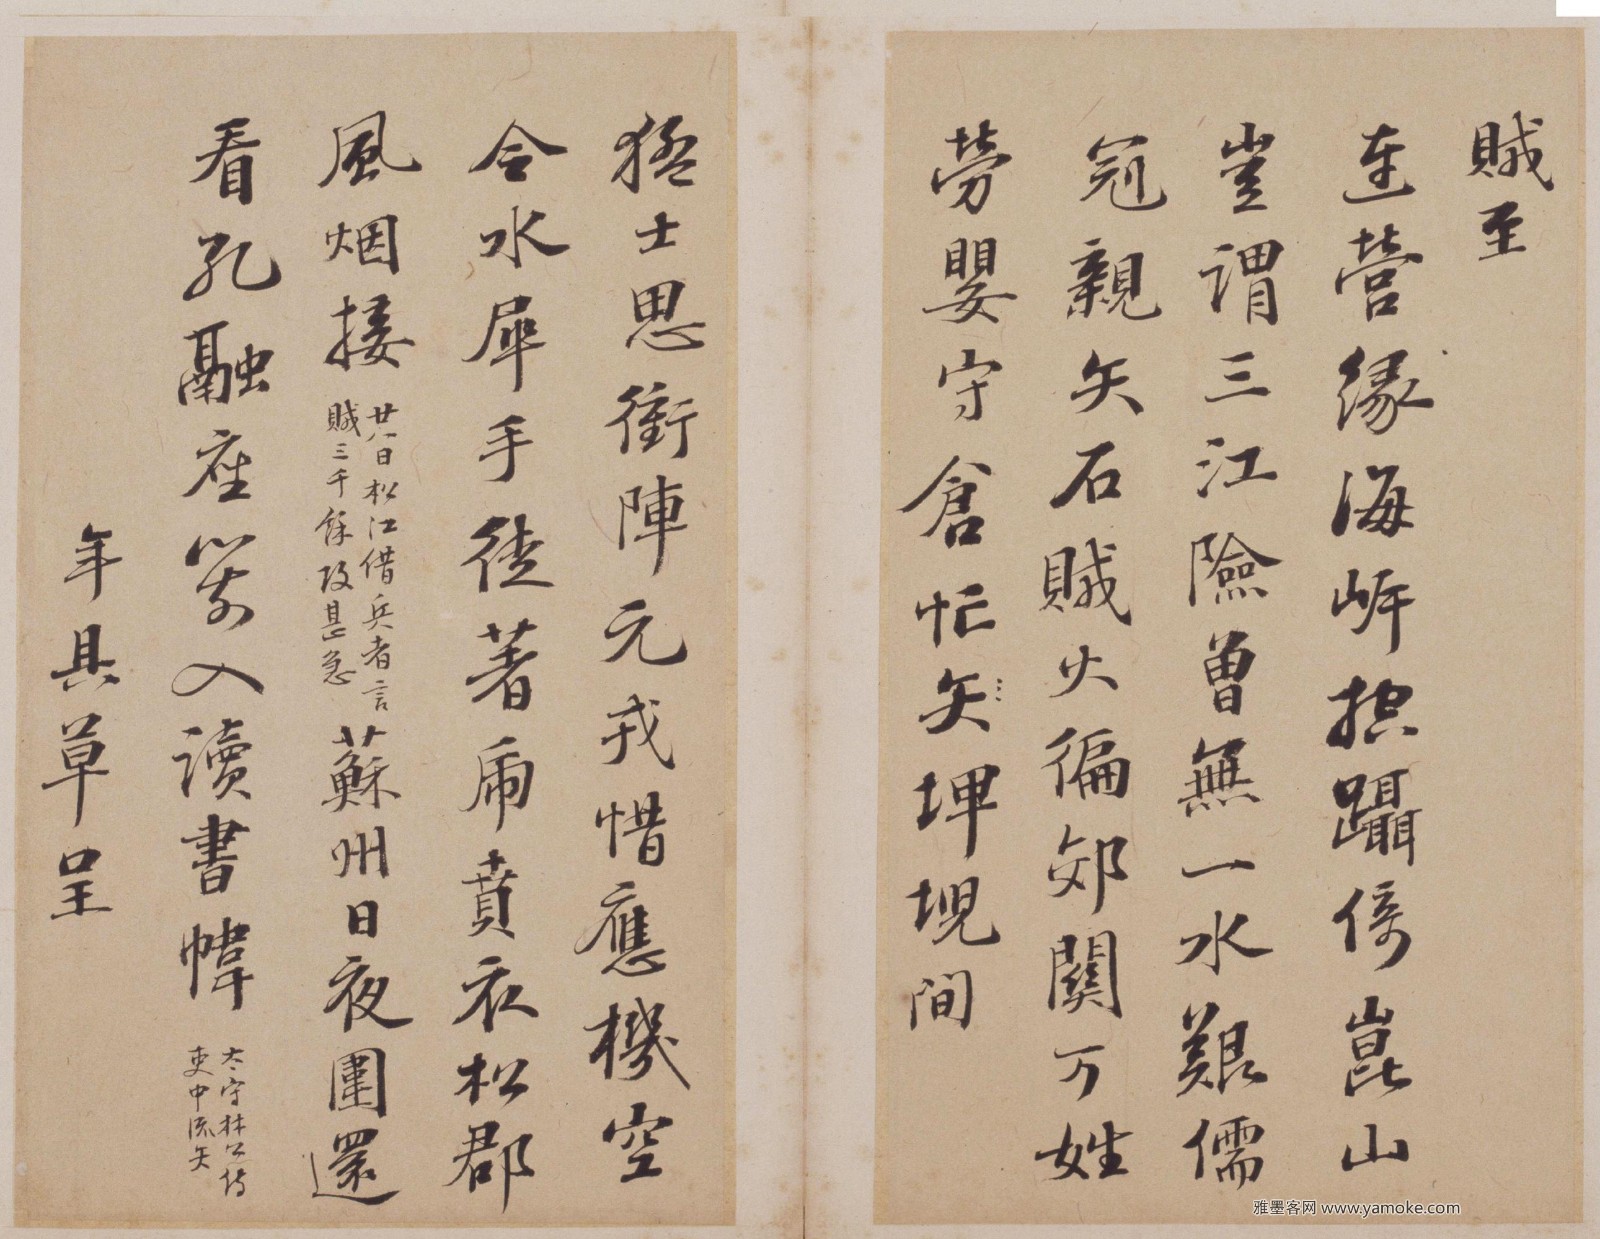 賊至
連營緣海㟁投躡倚崑山
豈謂三江險曾無一水艱儒
冠親矢石賊火徧郊關万姓
勞嬰守倉忙矢埤堄間
猛士思衝陣元戎惜應機空
令水犀手徒著虎賁衣松郡
風烟接
廿八日松江借兵者言
賊三千餘攻甚急
蘇州日夜圍還
看孔融座箭入讀書幃
太守林公侍
吏中流矢
年具草呈
雅墨客网 www.yamoke.com